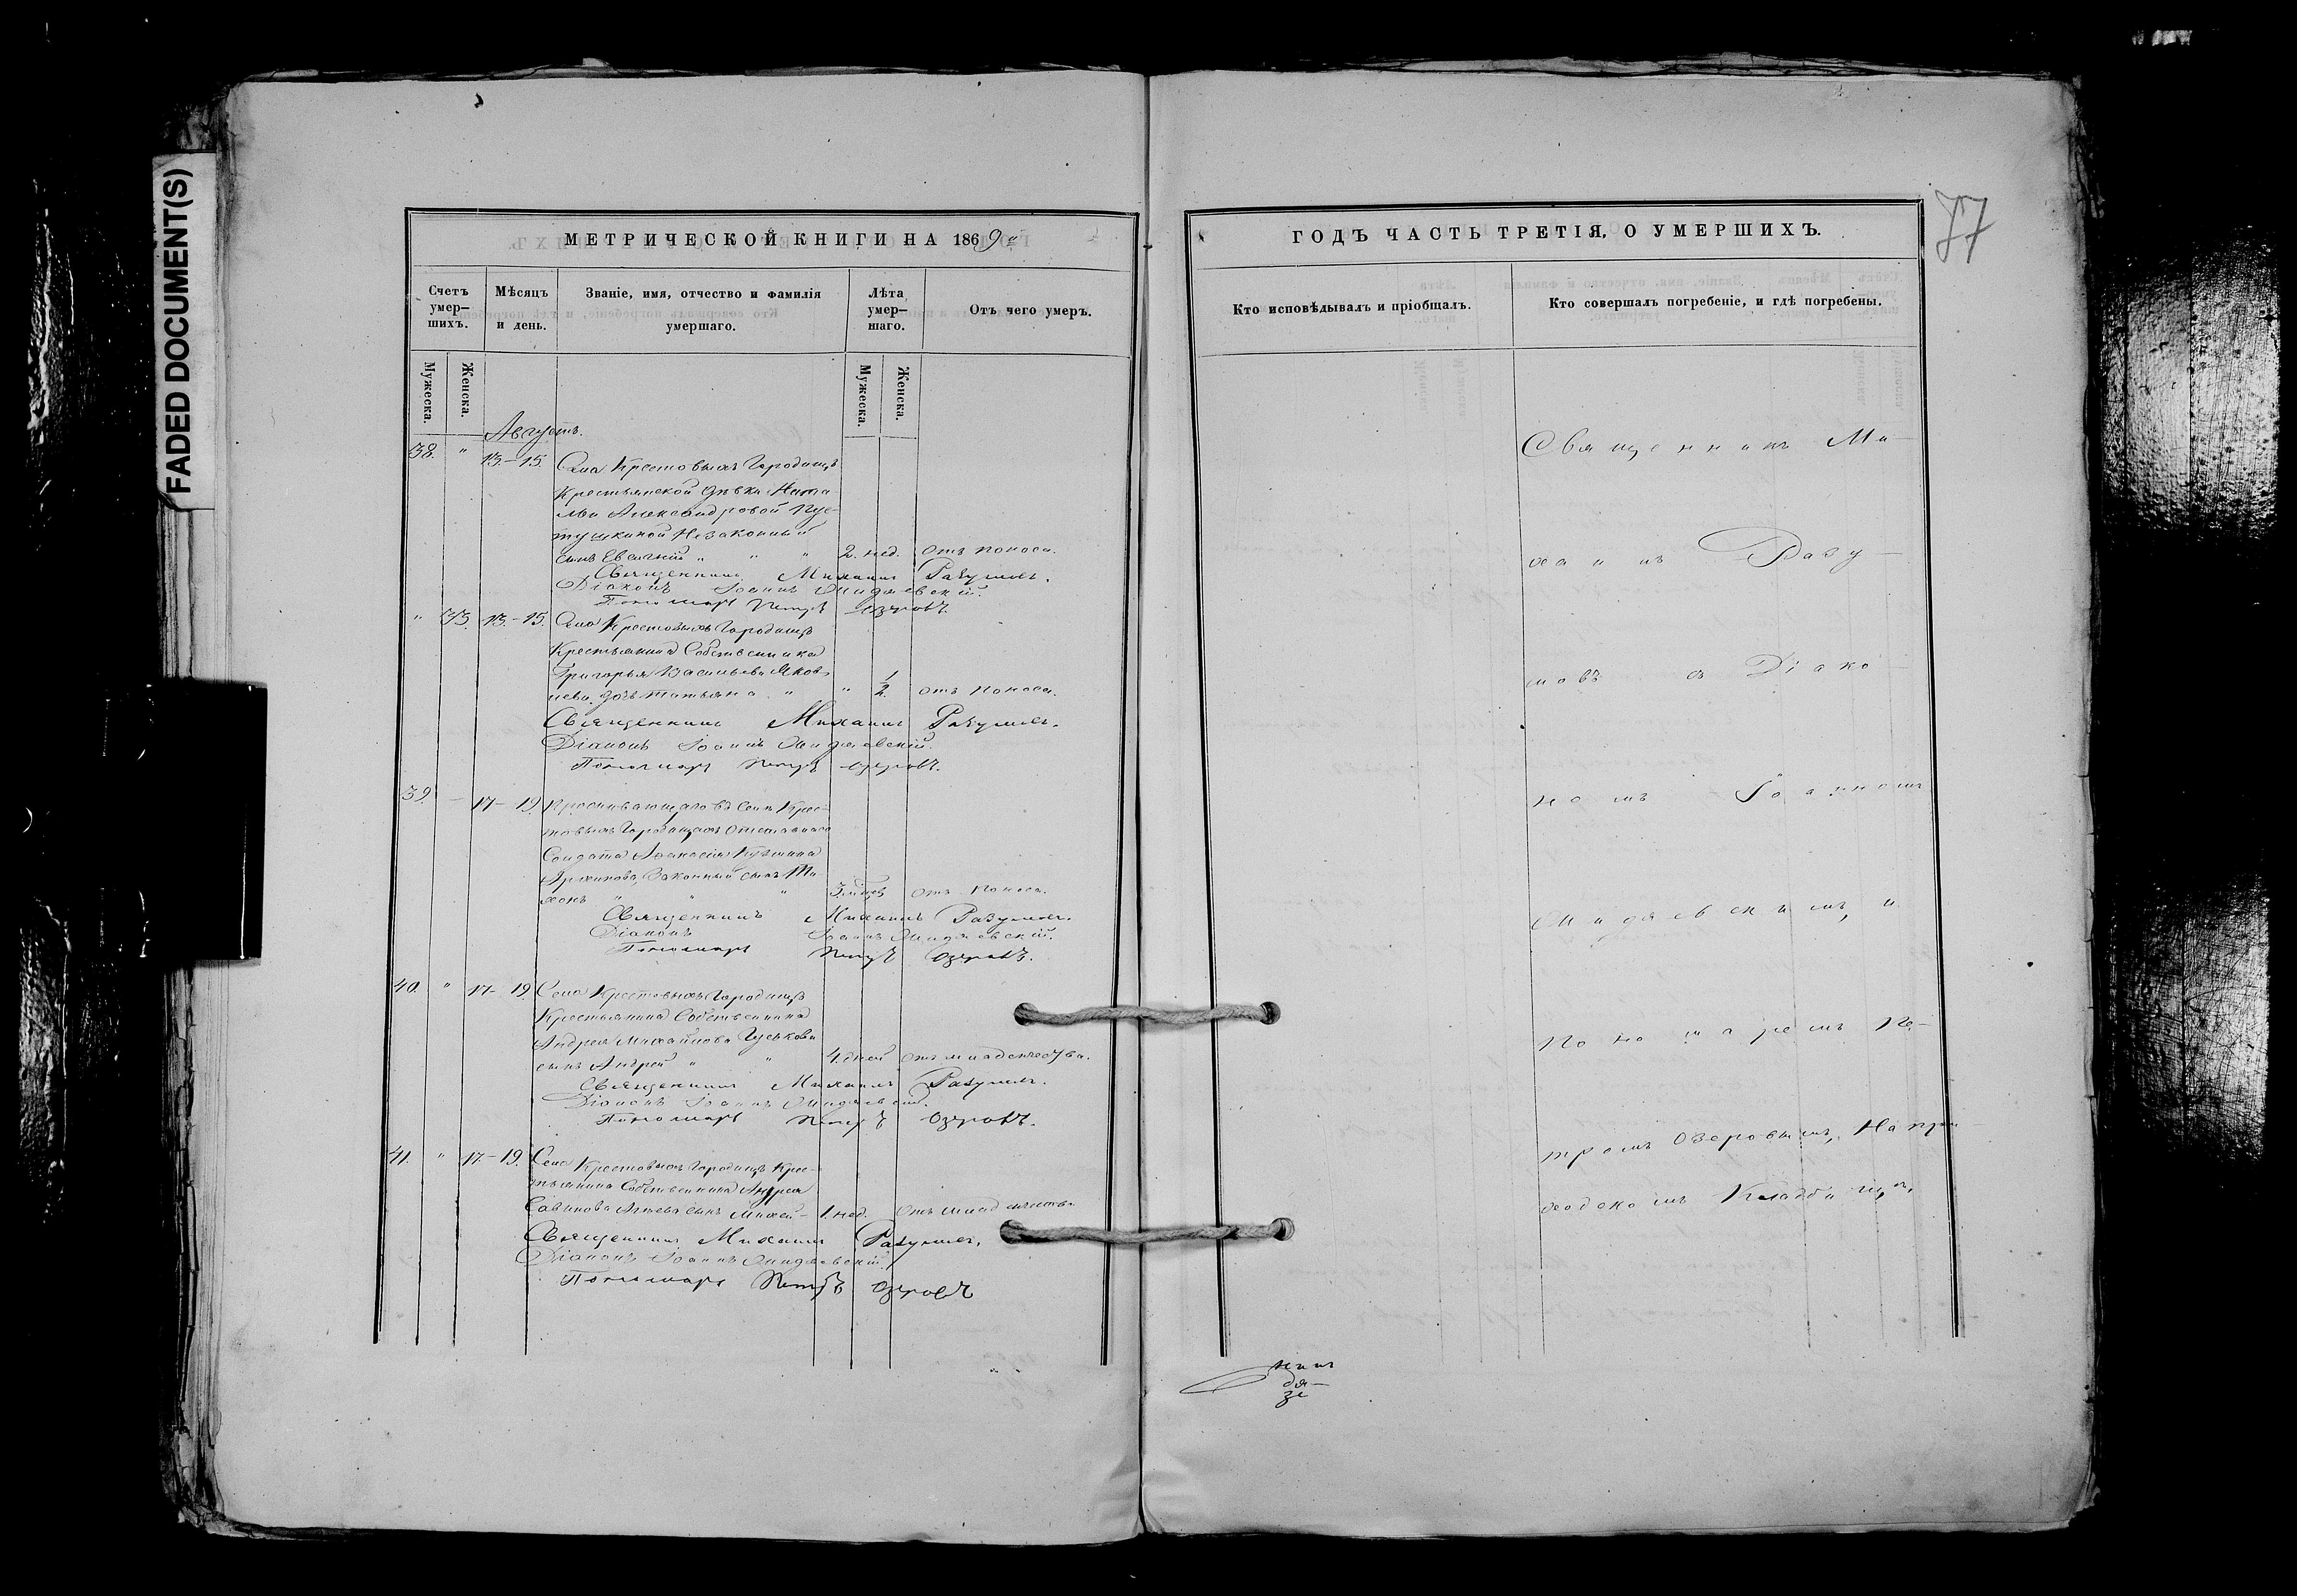 FADED DOCUMENT(S)
МЕТРИЧЕСКОЙ КНИГИ НА 1869й
Счетъ умер-шихъ.
Мѣсяцъ и день.
Званіе, имя, отчество и фамилія умершаго.
Лѣта умер-шаго.
Отъ чего умеръ.
Мужеска.
Женска.
Мужеска.
Женска.
Августъ.
38. " 13.-15. Села Крестовыхъ Городищъ
Крестьянской дѣвки Ната
льи Александровой Пус-
тушкиной Незаконный
сынъ Евгеній " " " 2. нед. отъ поноса.
Священникъ Михаилъ Разумовъ.
Діаконъ Іоаннъ
Пономарь Петръ Озеровъ.
" 33. 13.-15. Села Крестовыхъ Городищъ
Крестьянина Собственника
Григорья Васильева Яков
лева дочь Татьяна " " ½ отъ поноса.
Священникъ Михаилъ Разумовъ.
Діаконъ Іоаннъ
Пономарь Петръ Озеровъ.
39. - 17-19. Проживающаго въ Селѣ Крес-
товыхъ Городищахъ Отставнаго
Солдата Афанасія Кузьмина
Законный сынъ Ти
хонъ " " " 3. мѣсяц отъ поноса.
Священникъ Михаилъ Разумовъ.
Діаконъ Іоаннъ
Пономарь Петръ Озеровъ.
40. " 17-19. Села Крестовыхъ Городищъ
Крестьянина Собственника
Андрея Михайлова Гуськова
сынъ Андрей " " 4. дней отъ младенчества.
Священникъ Михаилъ Разумовъ.
Діаконъ Іоаннъ
Пономарь Петръ Озеровъ.
41. " 17-19. Села Крестовыхъ Городищъ Крес-
тьянина Собственника Андрея
Савинова сынъ Михей - 1. нед. отъ младенчества
Священникъ Михаилъ Разумовъ.
Діаконъ Іоаннъ
Пономарь Петръ Озеровъ
ГОДЪ ЧАСТЬ ТРЕТІЯ, О УМЕРШИХЪ.
77
Кто исповѣдывалъ и пріобщалъ.
Кто совершалъ погребеніе, и гдѣ погребены.
Священникъ Ми-
хаилъ Разу-
мовъ съ Діако-
номъ Іоанномъ
и
Пономаремъ Пе-
тромъ Озеровымъ, На при-
ходскомъ Кладбищѣ.